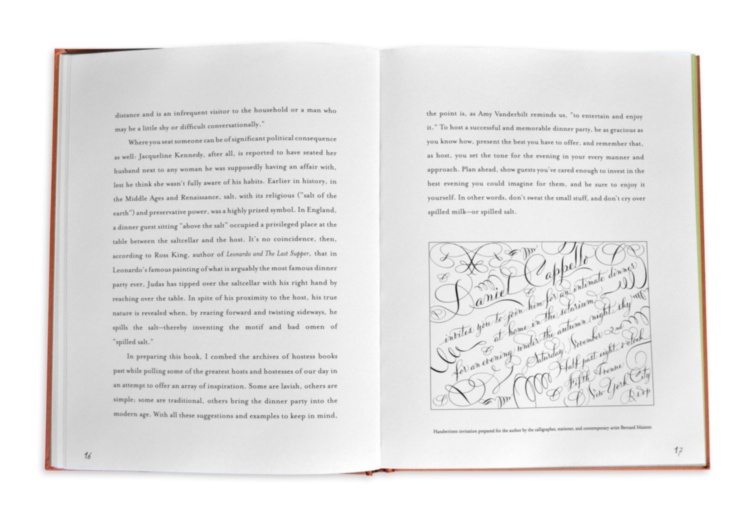 distance and is an infrequent visitor to the household or a man who
may be a little shy or difficult conversationally."
Where you seat someone can be of significant political consequence
as well. Jacqueline Kennedy, after all, is reported to have seated her
husband next to any woman he was supposedly having an affair with,
lest he think she wasn't fully aware of his habits. Earlier in history, in
the Middle Ages and Renaissance, salt, with its religious ("salt of the
earth") and preservative power, was a highly prized symbol. In England,
a dinner guest sitting "above the salt" occupied a privileged place at the
table between the saltcellar and the host. It's no coincidence, then,
according to Ross King, author of Leonardo and The Last Supper, that in
Leonardo's famous painting of what is arguably the most famous dinner
party ever, Judas has tipped over the saltcellar with his right hand by
reaching over the table. In spite of his proximity to the host, his true
nature is revealed when, by rearing forward and twisting sideways, he
spills the salt—thereby inventing the motif and bad omen of
"spilled salt."
In preparing this book, I combed the archives of hostess books
past while polling some of the greatest hosts and hostesses of our day in
an attempt to offer an array of inspiration. Some are lavish, others are
simple; some are traditional, others bring the dinner party into the
modern age. With all these suggestions and examples to keep in mind,
16
the point is, as Amy Vanderbilt reminds us, "to entertain and enjoy
it." To host a successful and memorable dinner party, be as gracious as
you know how, present the best you have to offer, and remember that,
as host, you set the tone for the evening in your every manner and
approach. Plan ahead, show guests you've cared enough to invest in the
best evening you could imagine for them, and be sure to enjoy it
yourself. In other words, don't sweat the small stuff, and don't cry over
spilled milk—or spilled salt.
Daniel Cappello
invites you to join him for an intimate dinner
at home in the solarium
for an evening under the autumn night sky
Saturday, November 2nd
Half past eight o'clock
Fifth Avenue
New York City
Rsvp
Handwritten invitation prepared for the author by the calligrapher, and contemporary artist Bernard Maisner.
17